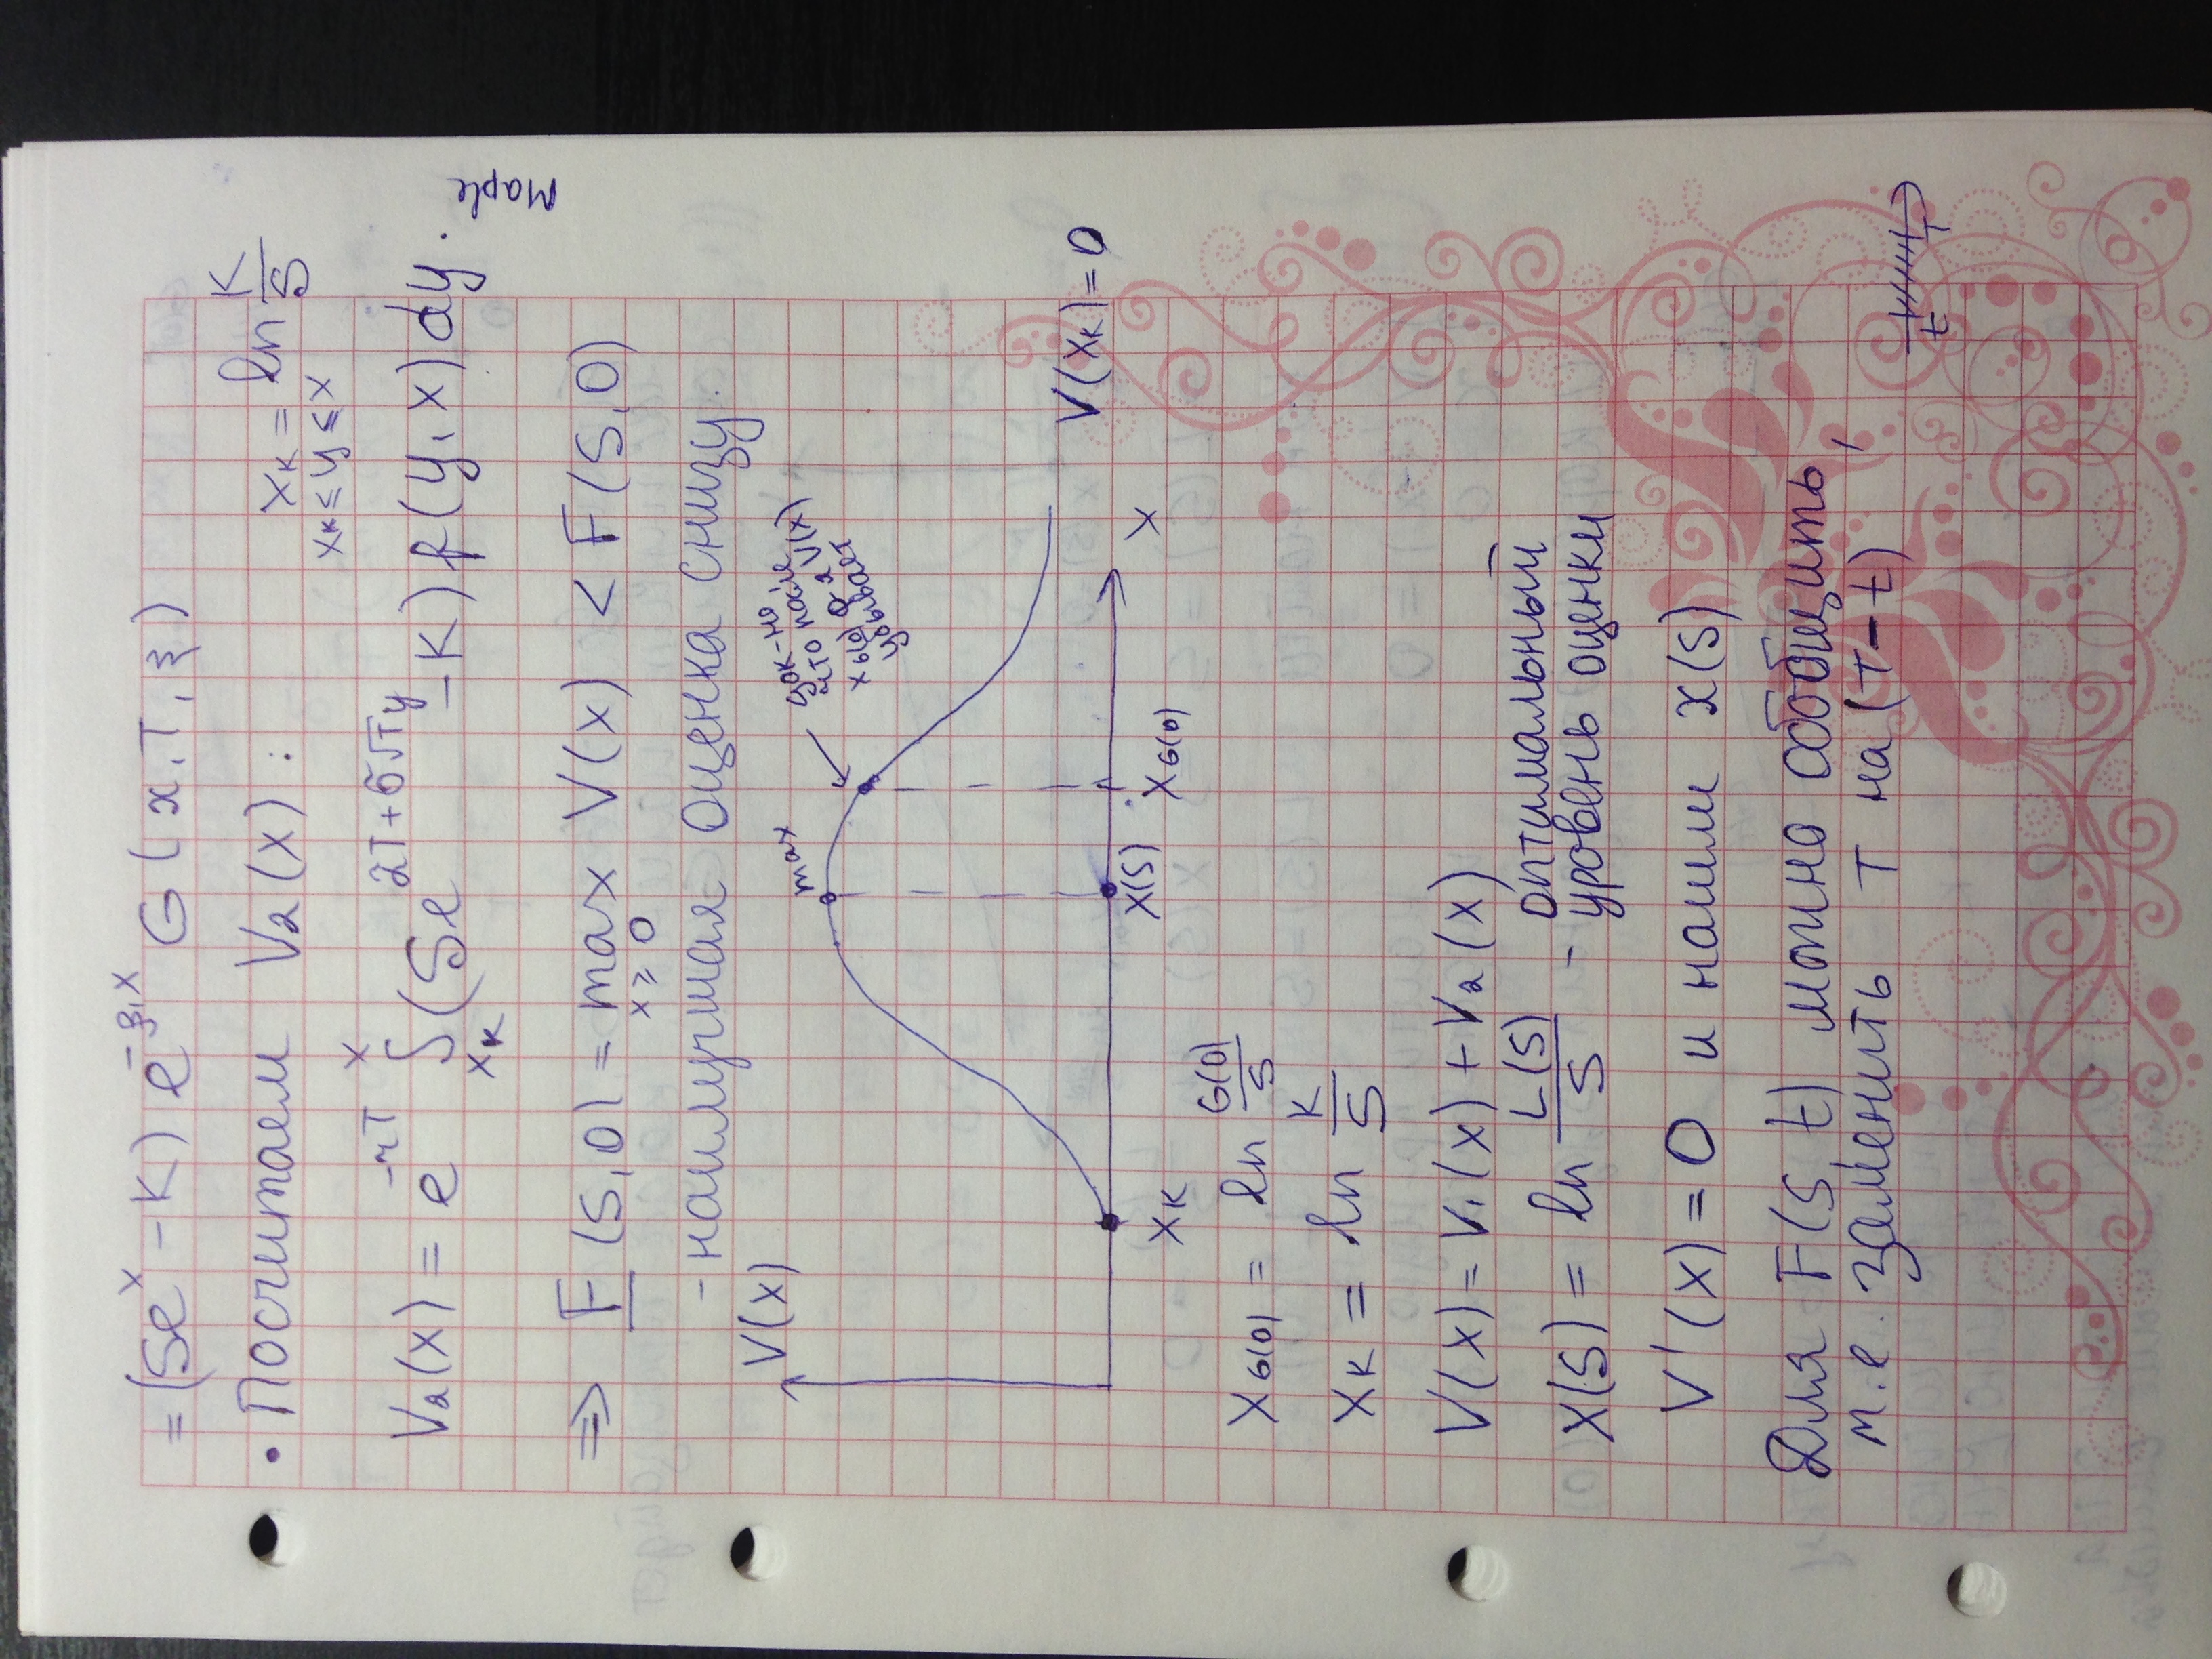 = (Se^x − K) e^{−β₁x} G(x, T, ξ)
• Посчитаем V₂(x): x_K = ln K/S
x_K ≤ y ≤ x
V₂(x) = e^{−rT} ∫_{x_K}^{x} (Se^{2T+σ√T y} − K) f(y, x) dy. Maple
⇒ F (S,0) = max_{x ≥ 0} V(x) < F(S,0)
- наилучшая оценка снизу.
V(x)
max
что
V(x)
убывает
V(x_K) = 0
x_K x(S) x_{G(0)} x
x_{G(0)} = ln G(0)/S
x_K = ln K/S
V(x) = V₁(x) + V₂(x)
x(S) = ln L(S)/S - оптимальный
уровень оценки
V'(x) = 0 и нашли x(S)
Для F(S t) можно обобщить,
т.е. заменить T на (T−t)
t T